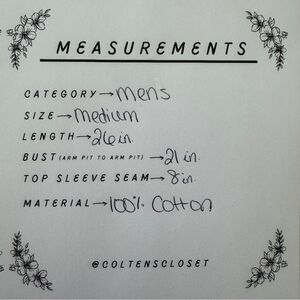 MEASUREMENTS
CATEGORY → mens
SIZE → medium
LENGTH → 26 in.
BUST (ARM PIT TO ARM PIT) → 21 in.
TOP SLEEVE SEAM → 8 in.
MATERIAL → 100% cotton
@COLTENSCLOSET